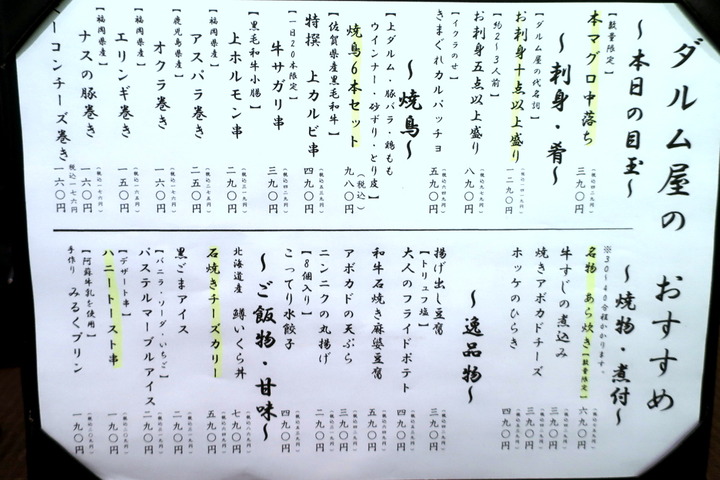 ダルム屋の おすすめ
～本日の目玉～
【数量限定】
本マグロ中落ち 三九〇円
～刺身・肴～
【ダルム屋の代名詞】
お刺身十点以上盛り 一二九〇円
【約2～3人前】
お刺身五点以上盛り 八九〇円
【イクラのせ】
きまぐれカルパッチョ 五九〇円
～焼鳥～
【上ダルム・豚バラ・鶏もも
ウインナー・砂ずり・とり皮】
焼鳥6本セット 九八〇円(税込)
【佐賀県産黒毛和牛】
特撰 上カルビ串 四九〇円
【一日20本限定】
牛サガリ串 三九〇円
【黒毛和牛小腸】
上ホルモン串 二九〇円
【福岡県産】
アスパラ巻き 二五〇円
【鹿児島県産】
オクラ巻き 一六〇円
【福岡県産】
エリンギ巻き 一五〇円
【福岡県産】
ナスの豚巻き 一六〇円
ーコンチーズ巻き 一六〇円
～焼物・煮付～
※30～40分程かかります。
名物 あら炊き【数量限定】 六九〇円
牛すじの煮込み 三九〇円
焼きアボカドチーズ 三九〇円
ホッケのひらき 四九〇円
～逸品物～
揚げ出し豆腐 三九〇円
【トリュフ塩】
大人のフライドポテト 四九〇円
和牛石焼き麻婆豆腐 五九〇円
アボカドの天ぷら 三九〇円
ニンニクの丸揚げ 二九〇円
【8個入り】
こってり水餃子 四九〇円
～ご飯物・甘味～
北海道産 鱒いくら丼 七九〇円
石焼きチーズカリー 五九〇円
黒ごまアイス 二九〇円
【バニラ・ソーダ・いちご】
パステルマーブルアイス 二九〇円
【デザート串】
ハニートースト串 一九〇円
【阿蘇牛乳を使用】
手作り みるくプリン 一九〇円